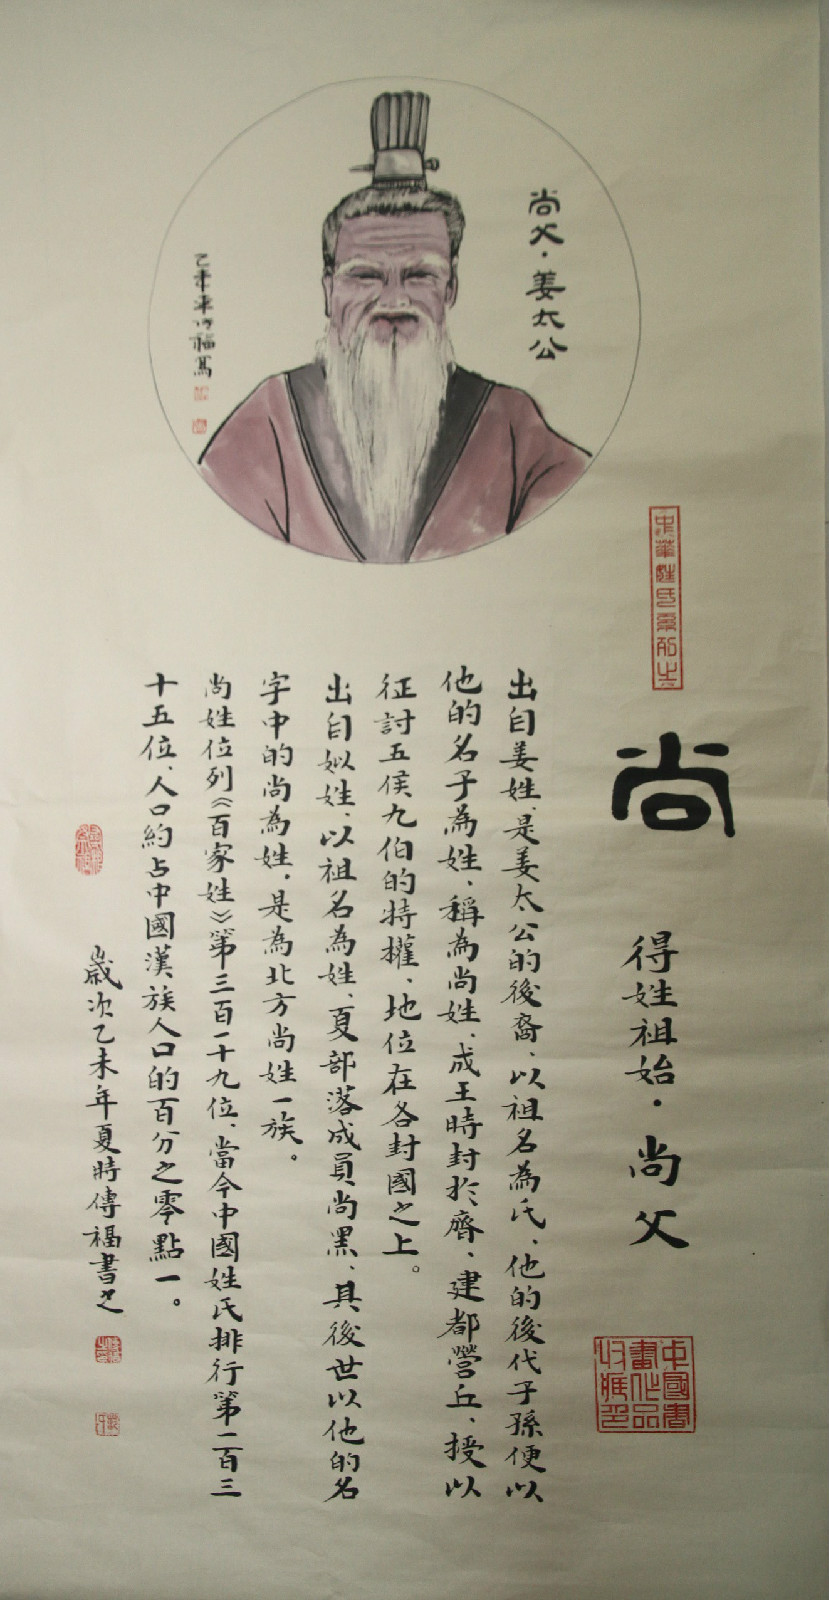 尚父·姜太公
乙未年傳福寫
中華姓氏系列之
尚
得姓祖始·尚父
中國書畫作品收藏印
出自姜姓、是姜太公的後裔、以祖名為氏、他的後代子孫便以
他的名子為姓、稱為尚姓、成王時封於齊、建都營丘、授以
征討五侯九伯的特權、地位在各封國之上。
出自姒姓、以祖名為姓、夏部落成員尚黑、其後世以他的名
字中的尚為姓，是為北方尚姓一族。
尚姓位列《百家姓》第三百一十九位、當今中國姓氏排行第一百三
十五位、人口約占中國漢族人口的百分之零點一。
歲次乙未年夏時傳福書之